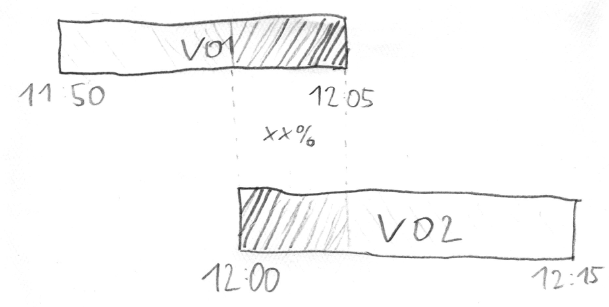 VO1
11:50
12:05
xx%
VO2
12:00
12:15